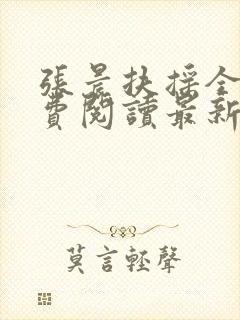 張景扶搖全
費閱讀最新
莫言輕聲